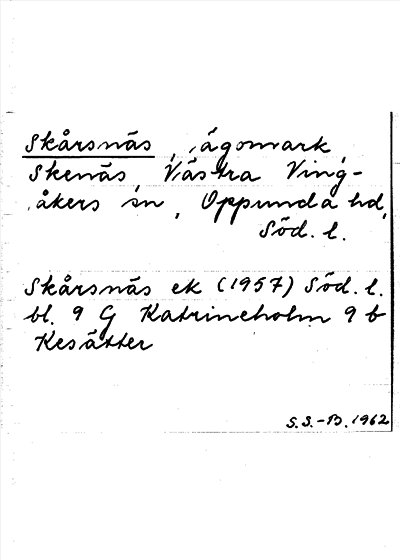 Skårsnäs, ägomark,
Skenäs, Västra Ving-
åkers sn, Oppunda hd,
Söd. l.
Skårsnäs ek (1957) Söd. l.
bl. 9 G Katrineholm 9 b
Kesätter
S.S.-B. 1962